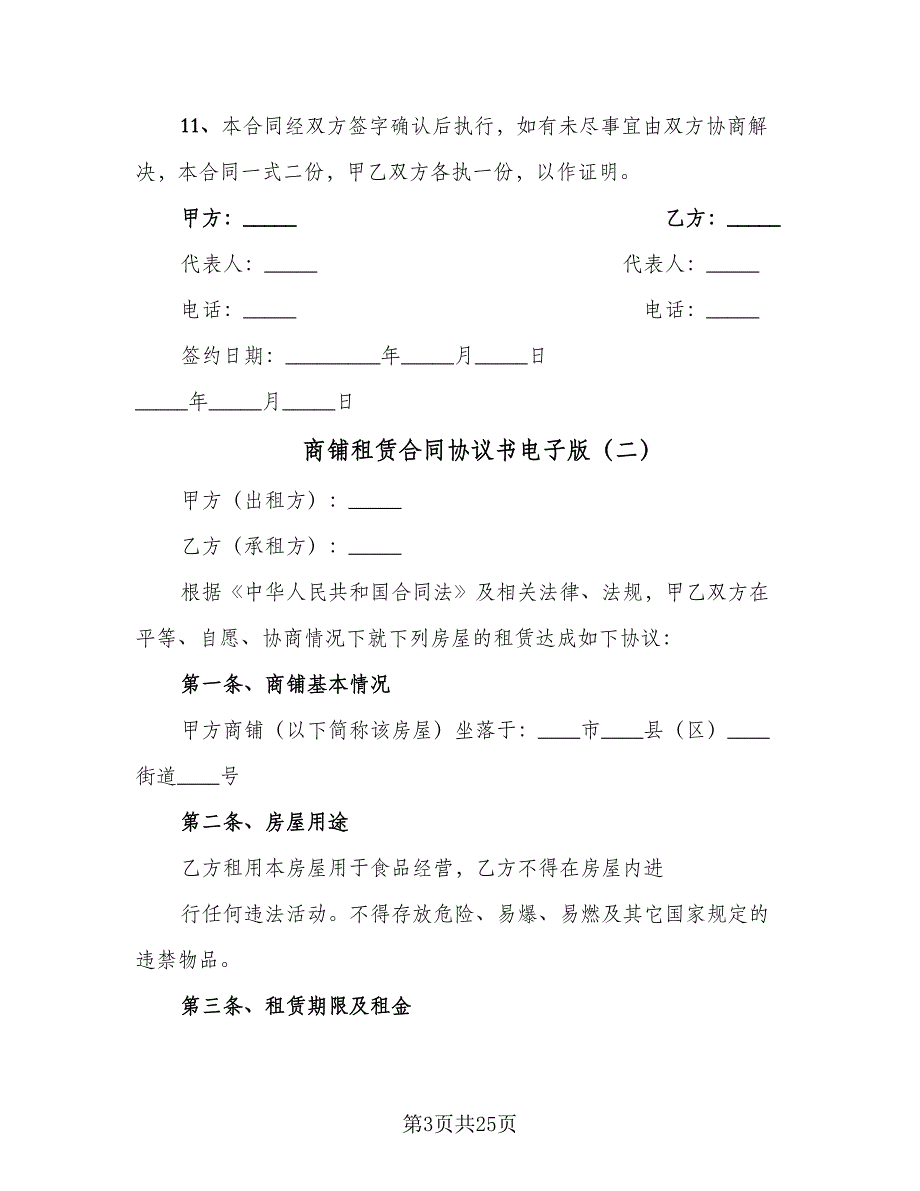 11、本合同经双方签字确认后执行，如有未尽事宜由双方协商解
决，本合同一式二份，甲乙双方各执一份，以作证明。
甲方：_____ 乙方：_____
代表人：_____ 代表人：_____
电话：_____ 电话：_____
签约日期：_________年_____月_____日
_____年_____月_____日
商铺租赁合同协议书电子版（二）
甲方（出租方）：_____
乙方（承租方）：_____
根据《中华人民共和国合同法》及相关法律、法规，甲乙双方在
平等、自愿、协商情况下就下列房屋的租赁达成如下协议：
第一条、商铺基本情况
甲方商铺（以下简称该房屋）坐落于：____市____县（区）____
街道____号
第二条、房屋用途
乙方租用本房屋用于食品经营，乙方不得在房屋内进
行任何违法活动。不得存放危险、易爆、易燃及其它国家规定的
违禁物品。
第三条、租赁期限及租金
第3页共25页